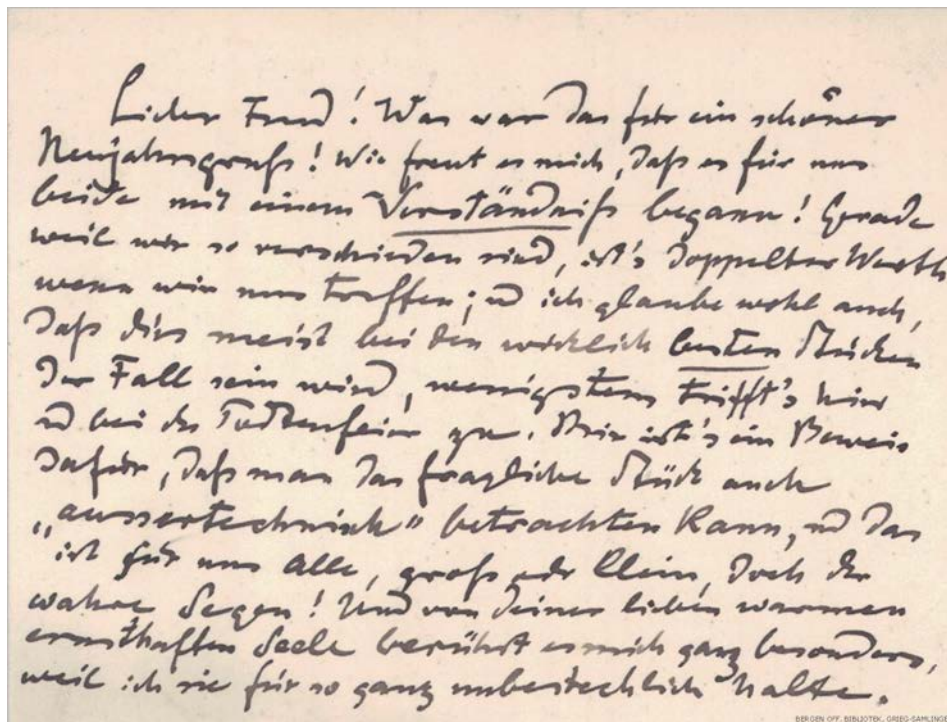 Lieber Freund! Was war das für ein schöner
Neujahrsgruß! Wie freut es mich, daß es für uns
beide mit einem Verständniß begann! Gerade
weil wir so verschieden sind, ist's doppelter Werth
wenn wir uns treffen; und ich glaube wohl auch,
daß dies meist bei den wirklich besten Stücken
der Fall sein wird, wenigstens trifft's hier
und bei der Todtenfeier zu. Mir ist's ein Beweis
dafür, daß man das fragliche Stück auch
„aussertechnisch" betrachten kann, und das
ist für uns Alle, groß oder klein, doch der
wahre Segen! Und von deiner lieben warmen
ernsthaften Seele berührt es mich ganz besonders,
weil ich sie für so ganz unbestechlich halte.
BERGEN OFF. BIBLIOTEK. GRIEG-SAMLINGEN